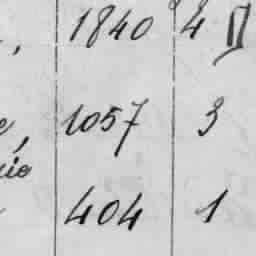 , 1840 4 D
e, 1057 3
cie
404 1